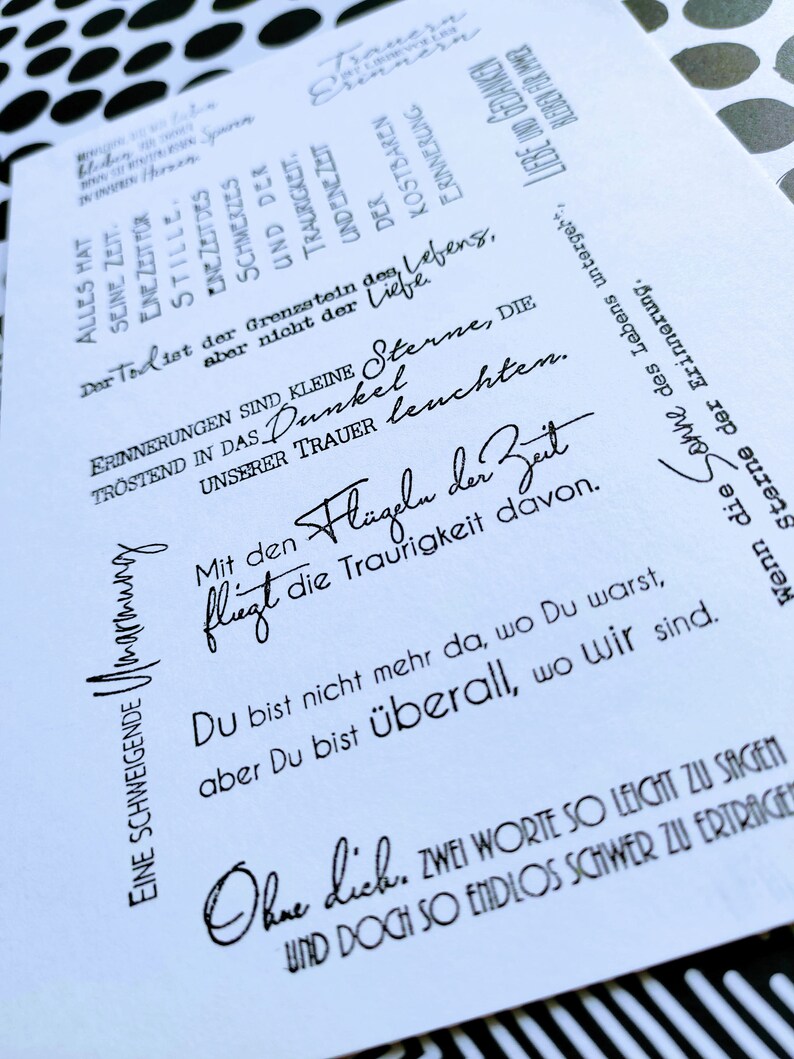 Trauern
IST LIEBEVOLLES
Erinnern
MENSCHEN, DIE WIR lieben
bleiben FÜR IMMER
DENN SIE HINTERLASSEN Spuren
IN UNSEREN Herzen.
LIEBE UND GEDANKEN
BLEIBEN FÜR IMMER
ALLES HAT
SEINE ZEIT.
EINE ZEIT FÜR
STILLE,
EINE ZEIT DES
SCHMERZES
UND DER
TRAURIGKEIT.
UND EINE ZEIT
DER
KOSTBAREN
ERINNERUNG.
Der Tod ist der Grenzstein des Lebens,
aber nicht der Liebe.
ERINNERUNGEN SIND KLEINE Sterne, DIE
TRÖSTEND IN DAS Dunkel
UNSERER TRAUER leuchten.
Wenn die Sonne des Lebens untergeht,
Sterne der Erinnerung.
Mit den Flügeln der Zeit
fliegt die Traurigkeit davon.
EINE SCHWEIGENDE Umarmung
Du bist nicht mehr da, wo Du warst,
aber Du bist überall, wo wir sind.
Ohne dich. ZWEI WORTE SO LEICHT ZU SAGEN
UND DOCH SO ENDLOS SCHWER ZU ERTRAGEN